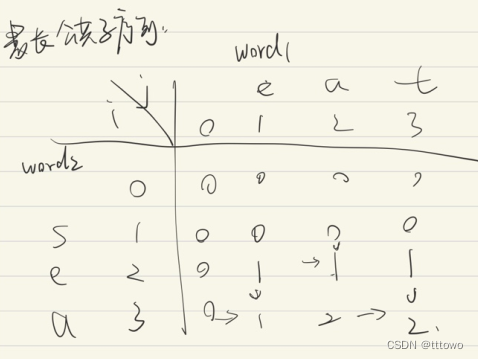 最长公共子序列.
word1
j e a t
i 0 1 2 3
word2
0 0 0 0 0
s 1 0 0 0 0
e 2 0 1 → 1 1
a 3 0 → 1 2 → 2.
CSDN @tttowo